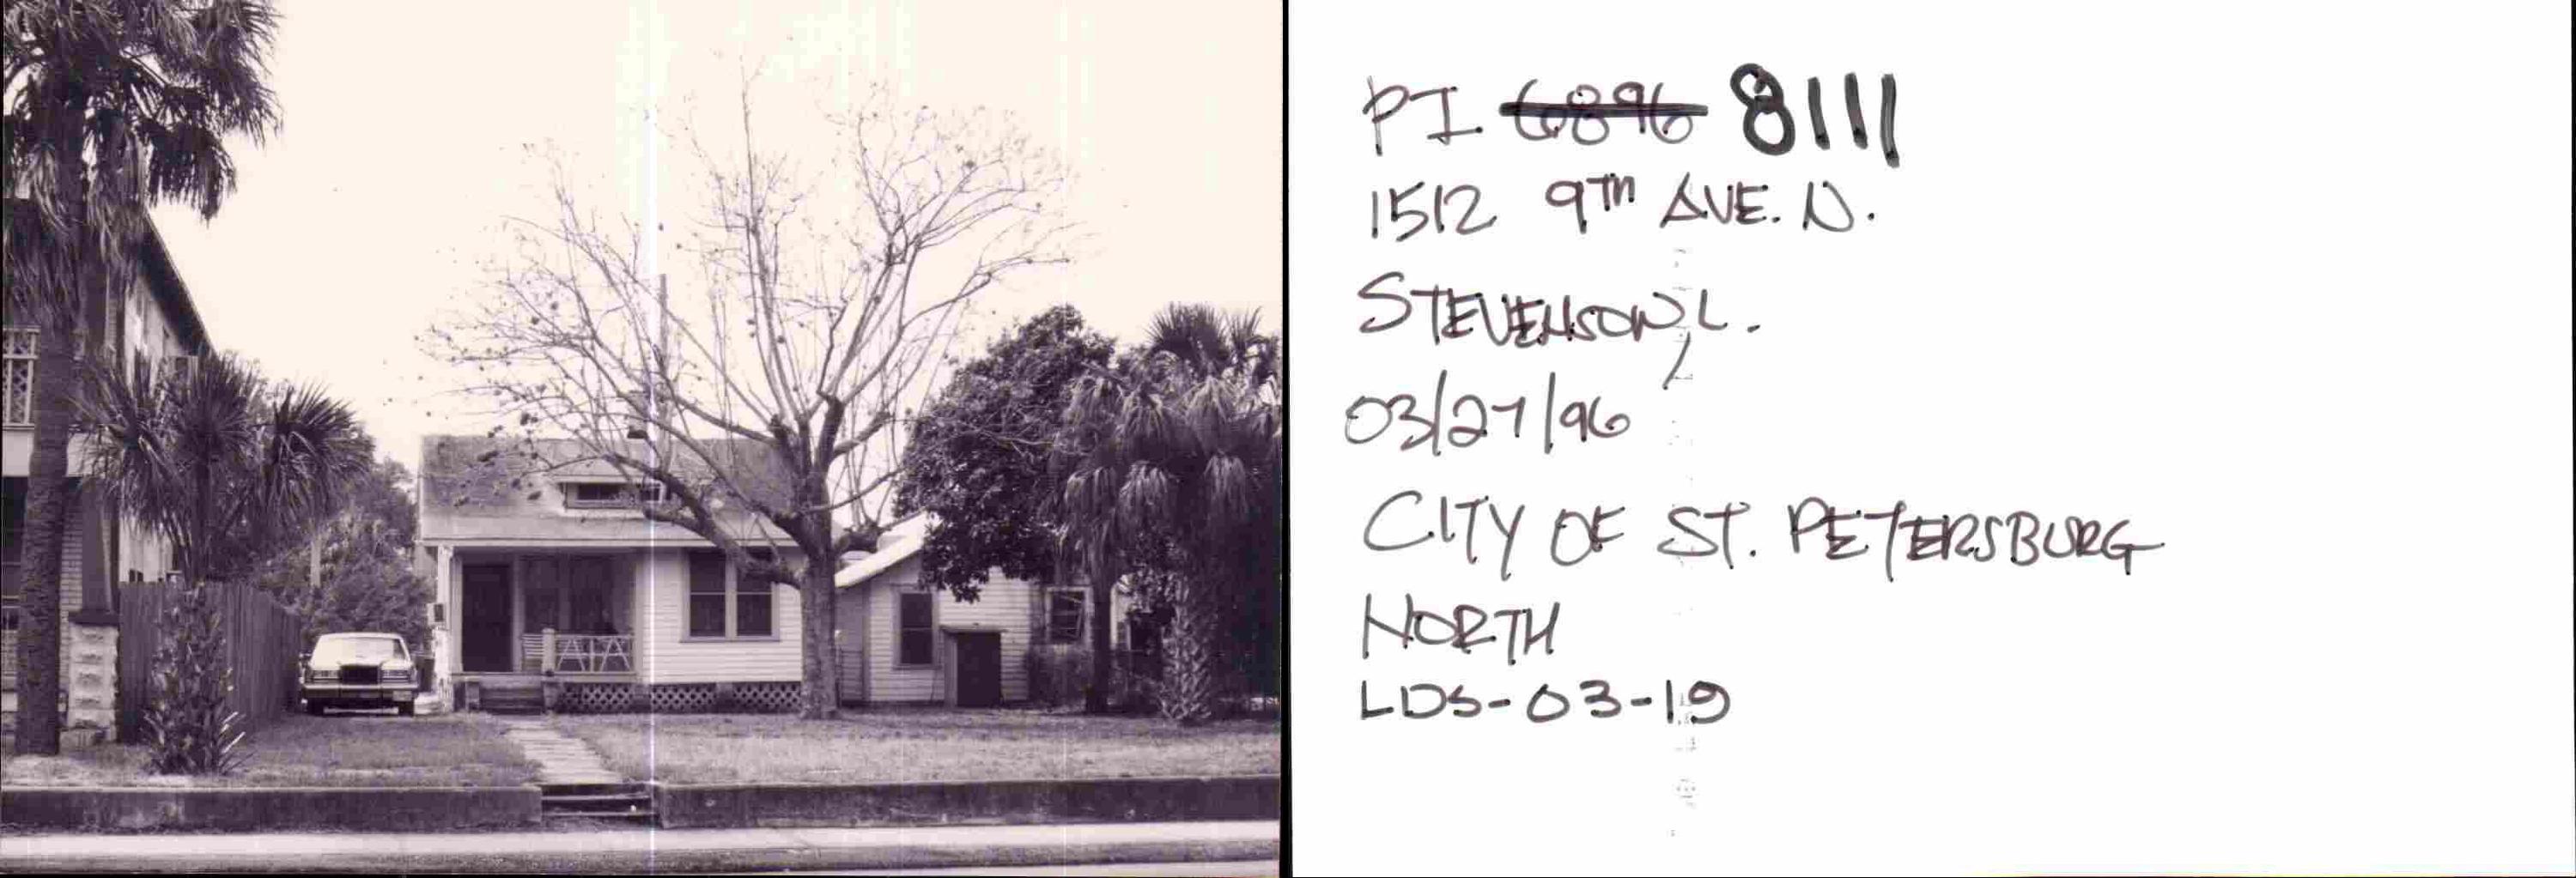 PI 6896 8111
1512 9TH AVE. N.
STEVENSON, L.
03/27/96
CITY OF ST. PETERSBURG
NORTH
LDS-03-19